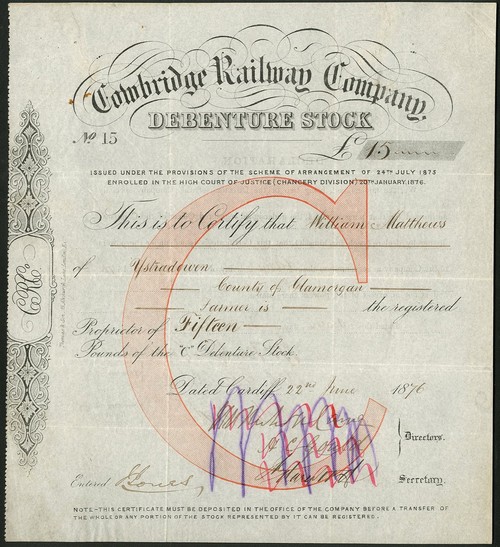 Cowbridge Railway Company,
DEBENTURE STOCK
No 15
£ 15
ISSUED UNDER THE PROVISIONS OF THE SCHEME OF ARRANGEMENT OF 24TH JULY 1875
ENROLLED IN THE HIGH COURT OF JUSTICE (CHANCERY DIVISION) 20TH JANUARY, 1876.
This is to Certify that William Matthews
of Ystradowen
County of Glamorgan
Farmer is the registered
Proprietor of Fifteen
Pounds of the "C" Debenture Stock
Dated Cardiff 22nd June 1876
C
Directors.
Entered Secretary.
NOTE - THIS CERTIFICATE MUST BE DEPOSITED IN THE OFFICE OF THE COMPANY BEFORE A TRANSFER OF
THE WHOLE OR ANY PORTION OF THE STOCK REPRESENTED BY IT CAN BE REGISTERED.